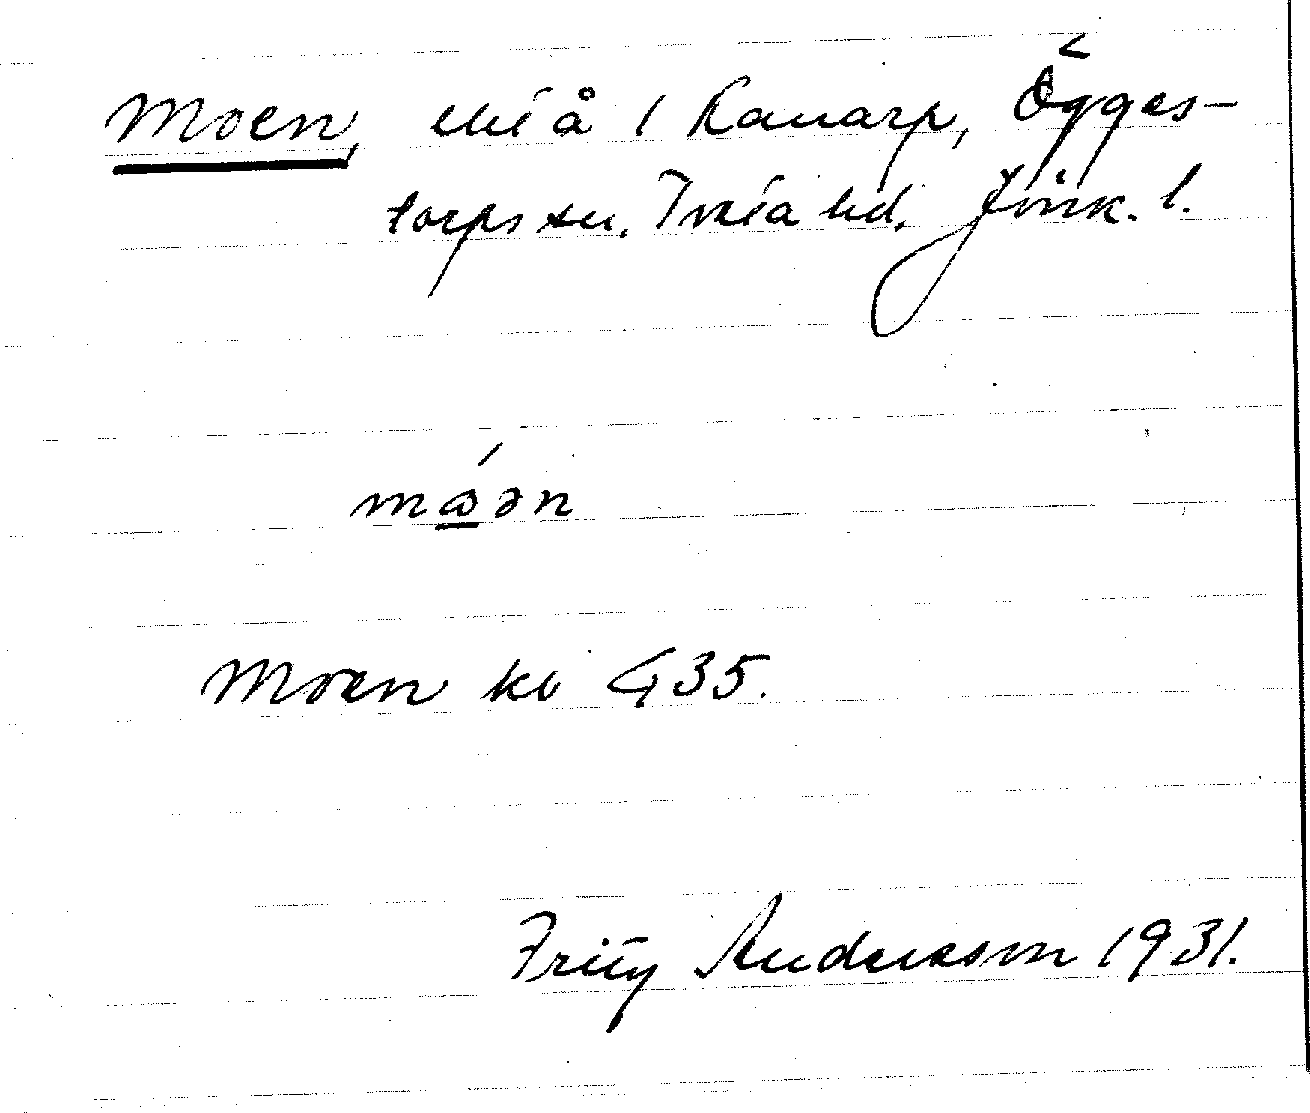 Moen, elliå i Ramarp, Ögges-
torps sn. Tveta hd. Jönk. l.
mó̲ən
Moen kv 435.
Fritz Andersson 1931.